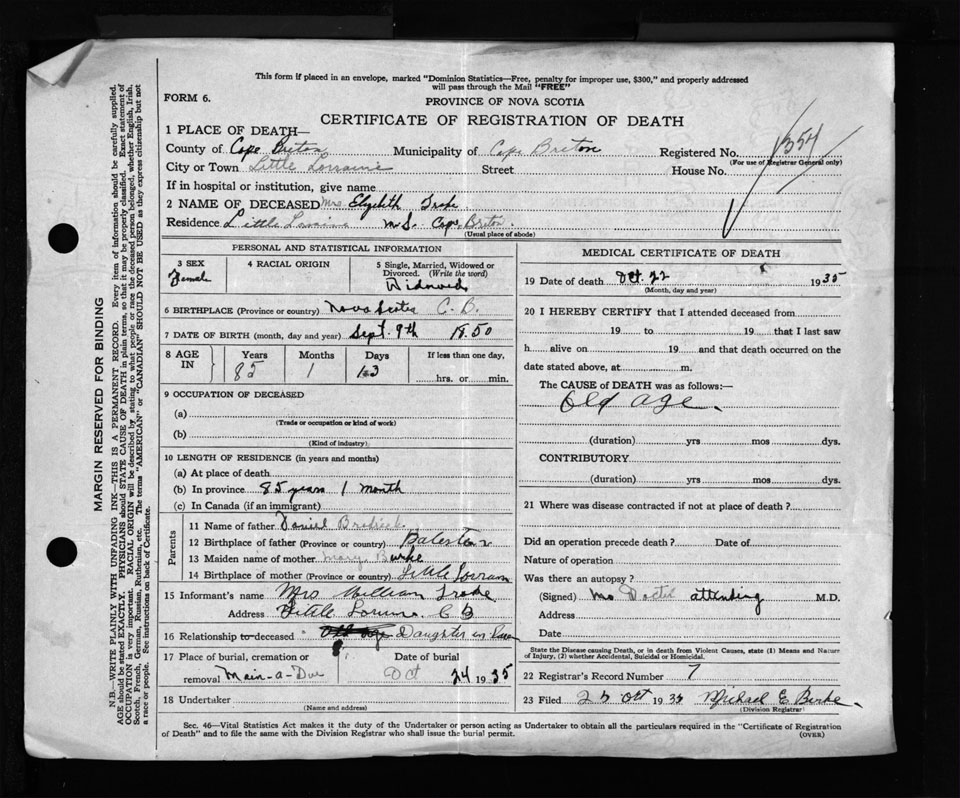 This form if placed in an envelope, marked "Dominion Statistics—Free, penalty for improper use, $300," and properly addressed
will pass through the Mail "FREE"
FORM 6.
PROVINCE OF NOVA SCOTIA
CERTIFICATE OF REGISTRATION OF DEATH
1 PLACE OF DEATH—
County of Cape Breton Municipality of Cape Breton Registered No.
(For use of Registrar General only)
City or Town Little Lorraine Street House No.
If in hospital or institution, give name
2 NAME OF DECEASED Mrs Elizabeth
Residence Little Lorraine N.S. Cape Breton.
(Usual place of abode)
PERSONAL AND STATISTICAL INFORMATION
3 SEX
Female
4 RACIAL ORIGIN
5 Single, Married, Widowed or
Divorced. (Write the word)
Widowed
6 BIRTHPLACE (Province or country) Nova Scotia C.B.
7 DATE OF BIRTH (month, day and year) Sept. 9th 1850
8 AGE IN
Years Months Days If less than one day,
85 1 13 hrs. or min.
9 OCCUPATION OF DECEASED
(a)
(Trade or occupation or kind of work)
(b)
(Kind of industry)
10 LENGTH OF RESIDENCE (in years and months)
(a) At place of death
(b) In province 85 years 1 month
(c) In Canada (if an immigrant)
Parents
11 Name of father Daniel
12 Birthplace of father (Province or country)
13 Maiden name of mother Mary Burke
14 Birthplace of mother (Province or country) Little Lorrain
15 Informant's name Mrs William
Address Little C B
16 Relationship to deceased Daughter in Law
17 Place of burial, cremation or
removal Main-a-Dieu
Date of burial
Oct 24 1935
18 Undertaker
(Name and address)
MEDICAL CERTIFICATE OF DEATH
19 Date of death Oct. 22 1935
(Month, day and year)
20 I HEREBY CERTIFY that I attended deceased from
19 to 19 that I last saw
h alive on 19 and that death occurred on the
date stated above, at m.
The CAUSE of DEATH was as follows:—
Old age.
(duration) yrs mos dys.
CONTRIBUTORY
(duration) yrs mos dys.
21 Where was disease contracted if not at place of death?
Did an operation precede death? Date of
Nature of operation
Was there an autopsy?
(Signed) No Doctor attending M.D.
Address
Date
State the Disease causing Death, or in death from Violent Causes, state (1) Means and Nature
of Injury, (2) whether Accidental, Suicidal or Homicidal.
22 Registrar's Record Number 7
23 Filed Oct 19 Michael E Burke.
(Division Registrar)
Sec. 46—Vital Statistics Act makes it the duty of the Undertaker or person acting as Undertaker to obtain all the particulars required in the "Certificate of Registration
of Death" and to file the same with the Division Registrar who shall issue the burial permit.
(OVER)
MARGIN RESERVED FOR BINDING
N.B.—WRITE PLAINLY WITH UNFADING INK—THIS IS A PERMANENT RECORD. Every item of information should be carefully supplied.
AGE should be stated EXACTLY. PHYSICIANS should STATE CAUSE OF DEATH in plain terms, so that it may be properly classified. Exact statement of
OCCUPATION is very important. RACIAL ORIGIN will be described by stating to what people or race the deceased person belonged, whether English, Irish,
Scotch, French, German, Russian, Ruthenian, etc. The terms "AMERICAN" or "CANADIAN" SHOULD NOT BE USED as they express citizenship but not
a race or people. See instructions on back of Certificate.